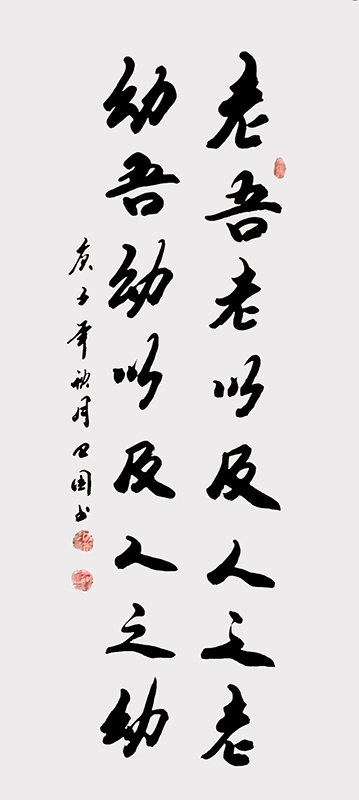 老吾老以及人之老
幼吾幼以及人之幼
庚子年秋月卫国书